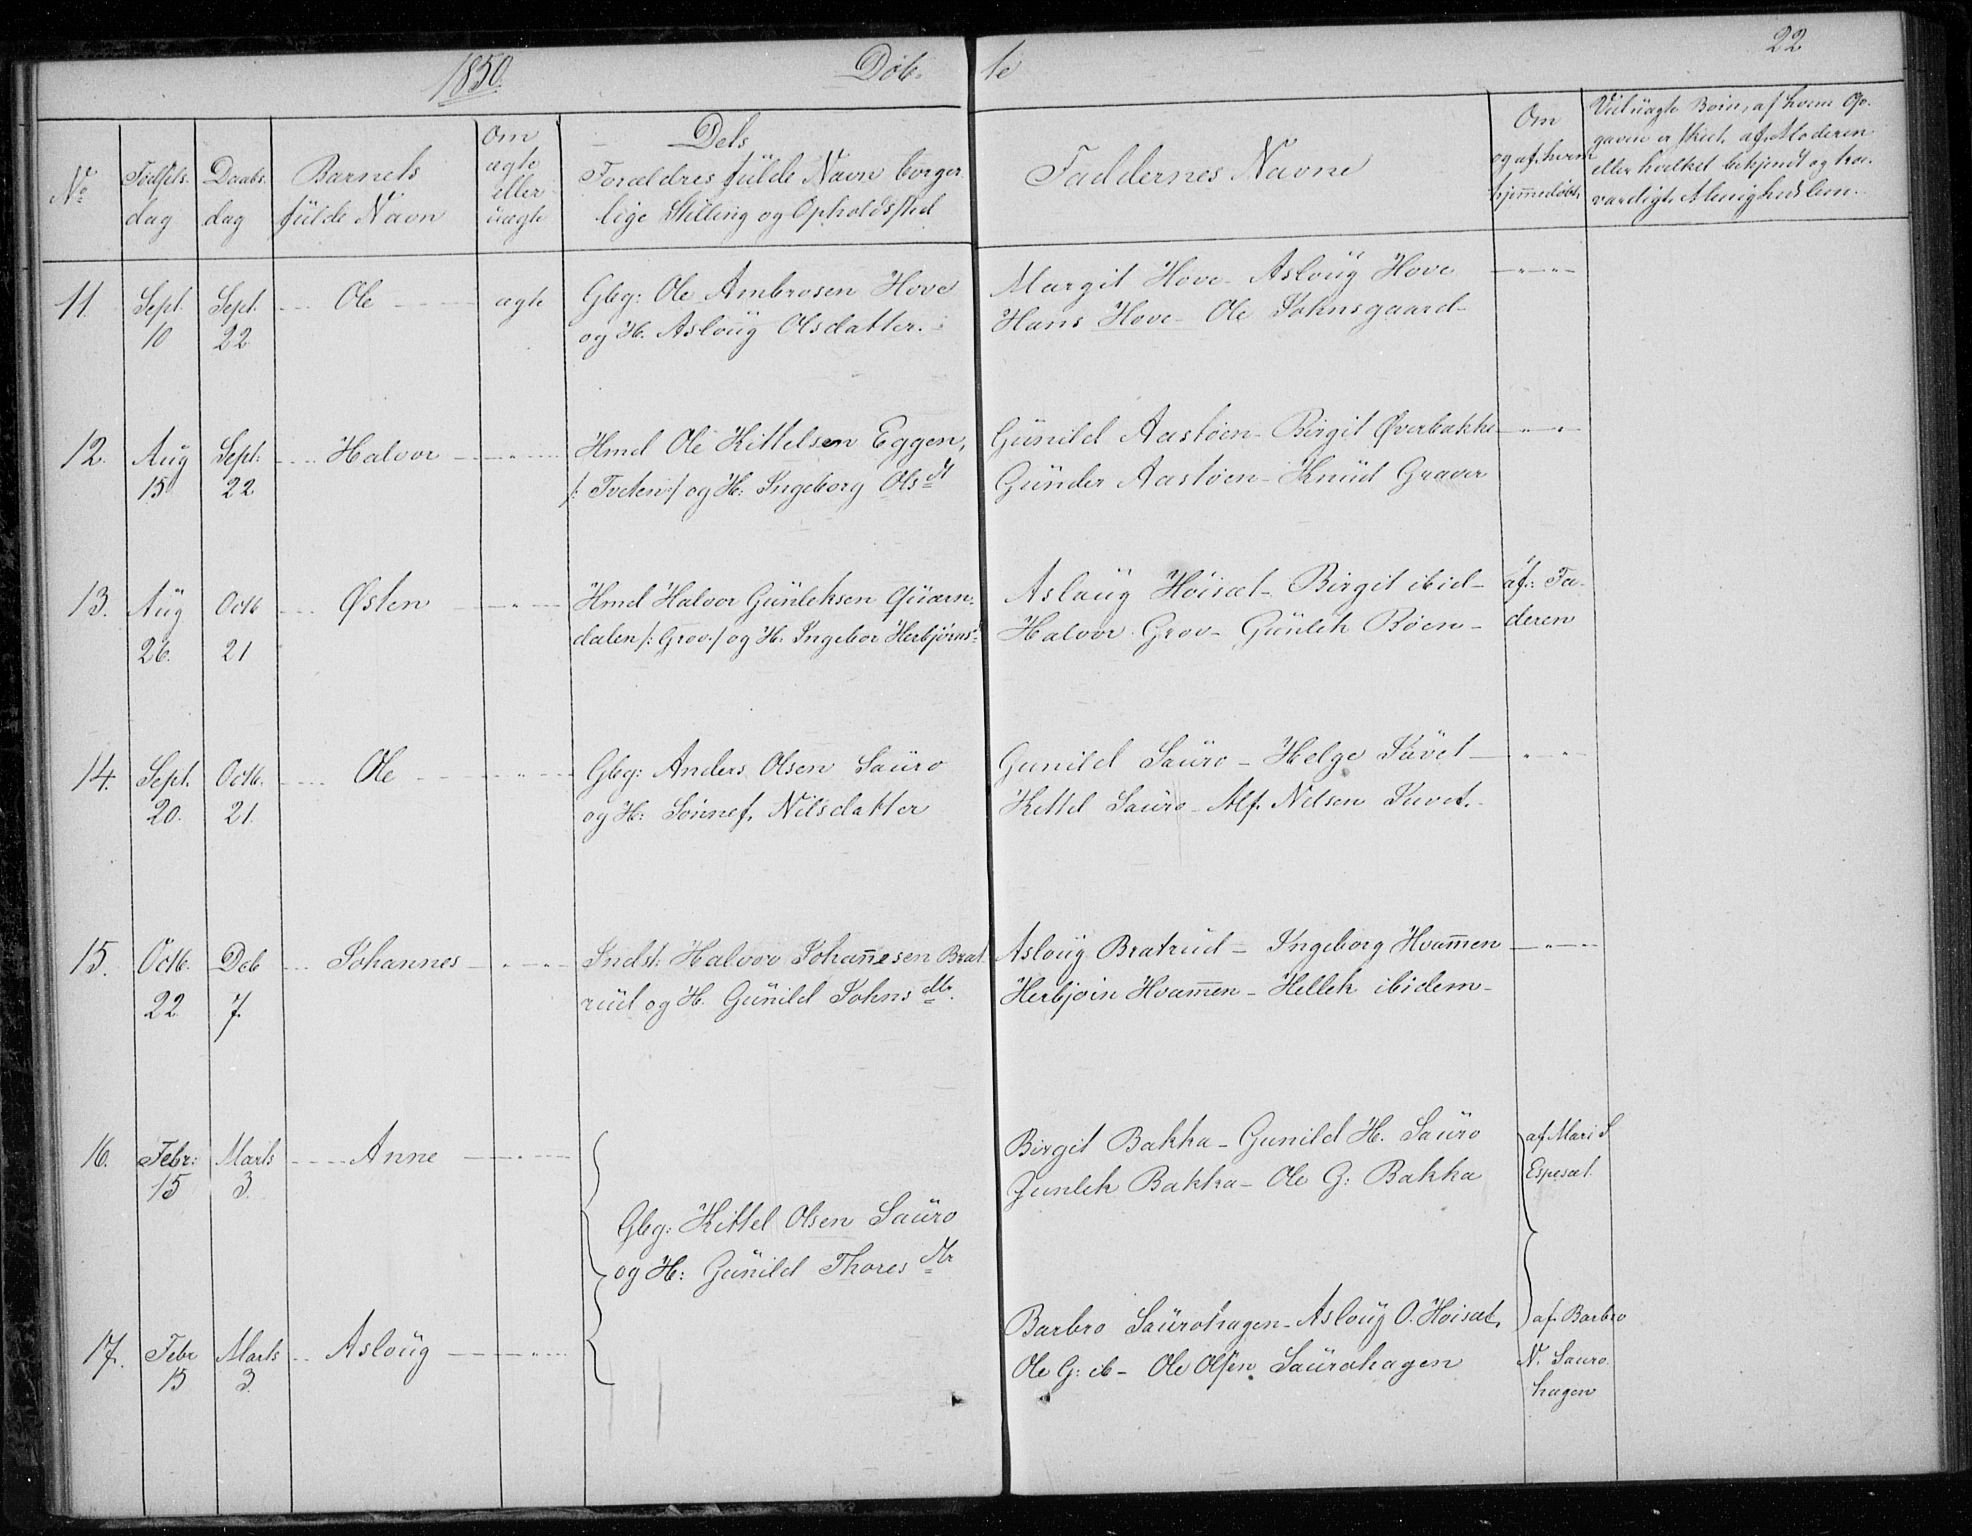 22
1850. Døb- te
No
Fødsels-
dag
Daabs-
dag
Barnets
fulde Navn
Om
ægte
eller
uægte
Dets
Forældres fulde Navn borger
lige Stilling og Opholdssted
Faddernes Navne
Om
og af hvem
hjemmedøbt
Ved uægte Børn, af hvem Op-
gaven er skeet, af Moderen
eller hvilket bekjendt og tro-
værdigt Menighedslem.
11. Sept. 10 Sept. 22 Ole ægte
Gbg: Ole Ambrosen Hove
og H. Asloug Olsdatter.
Margit Hove - Asloug Hove
Hans Hove - Ole Johnsgaard -
12. Aug 15 Sept: 22 Halvor
Hmd Ole Kittelsen Eggen,
/: Tveten :/ og H: Ingeborg Olsdt
Gunild Aasløen - Birgit Øverbakke
Gunder Aasløen - Knud Graver
13. Aug 26. Octb 21 Østen
Hmd Halvor Gunleksen Qværn-
dalen /: Grov :/ og H: Ingebor Herbjørns
Asloug Høisæt - Birgit ibid -
Halvor Grov - Gunlek Røen -
af: Fa-
deren
14. Sept. 20. Octb. 21. Ole
Gbg: Anders Olsen Sauro
og H: Sønnef. Nilsdatter
Gunild Sauro - Helge Juvet
Kittel Sauro - Alf. Nilsen Juvet.
15. Octb. 22 Deb 7. Johannes
Indst: Halvor Johannesen Brat-
rud og H. Gunild Johnsdtr.
Asloug Bratrud - Ingeborg Hvammen
Herbjøin Hvammen - Hellek ibidem -
16. Febr: 15 Marts 3. Anne
Birgit Bakka - Gunild H. Sauro
Gunlek Bakka - Ole G: Bakka
af Mari S
Espesæt
Gbg: Kittel Olsen Sauro
og H: Gunild Thoresdtr
17. Febr 15 Marts 3. Asloug
Barbro Saurohagen - Asloug O. Høisæt,
Ole G: ib - Ole Olsen Saurohagen
af Barbro
N. Sauro
hagen